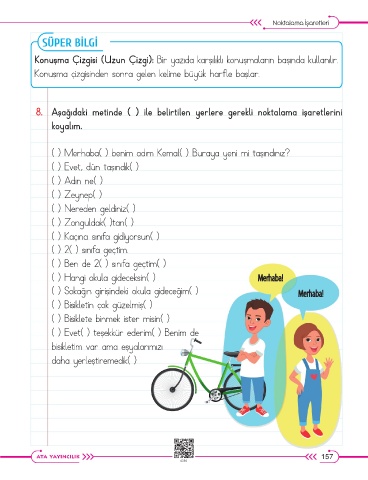 Noktalama İşaretleri
SÜPER BİLGİ
Konuşma Çizgisi (Uzun Çizgi): Bir yazıda karşılıklı konuşmaların başında kullanılır.
Konuşma çizgisinden sonra gelen kelime büyük harfle başlar.
8. Aşağıdaki metinde ( ) ile belirtilen yerlere gerekli noktalama işaretlerini
koyalım.
( ) Merhaba( ) benim adım Kemal( ) Buraya yeni mi taşındınız?
( ) Evet, dün taşındık( )
( ) Adın ne( )
( ) Zeynep( )
( ) Nereden geldiniz( )
( ) Zonguldak( )tan( )
( ) Kaçına sınıfa gidiyorsun( )
( ) 2( ) sınıfa geçtim.
( ) Ben de 2( ) sınıfa geçtim( )
( ) Hangi okula gideceksin( )
( ) Sokağın girişindeki okula gideceğim( )
( ) Bisikletin çok güzelmiş( )
( ) Bisiklete binmek ister misin( )
( ) Evet( ) teşekkür ederim( ) Benim de
bisikletim var ama eşyalarımızı
daha yerleştiremedik( )
Merhaba!
Merhaba!
ATA YAYINCILIK
157